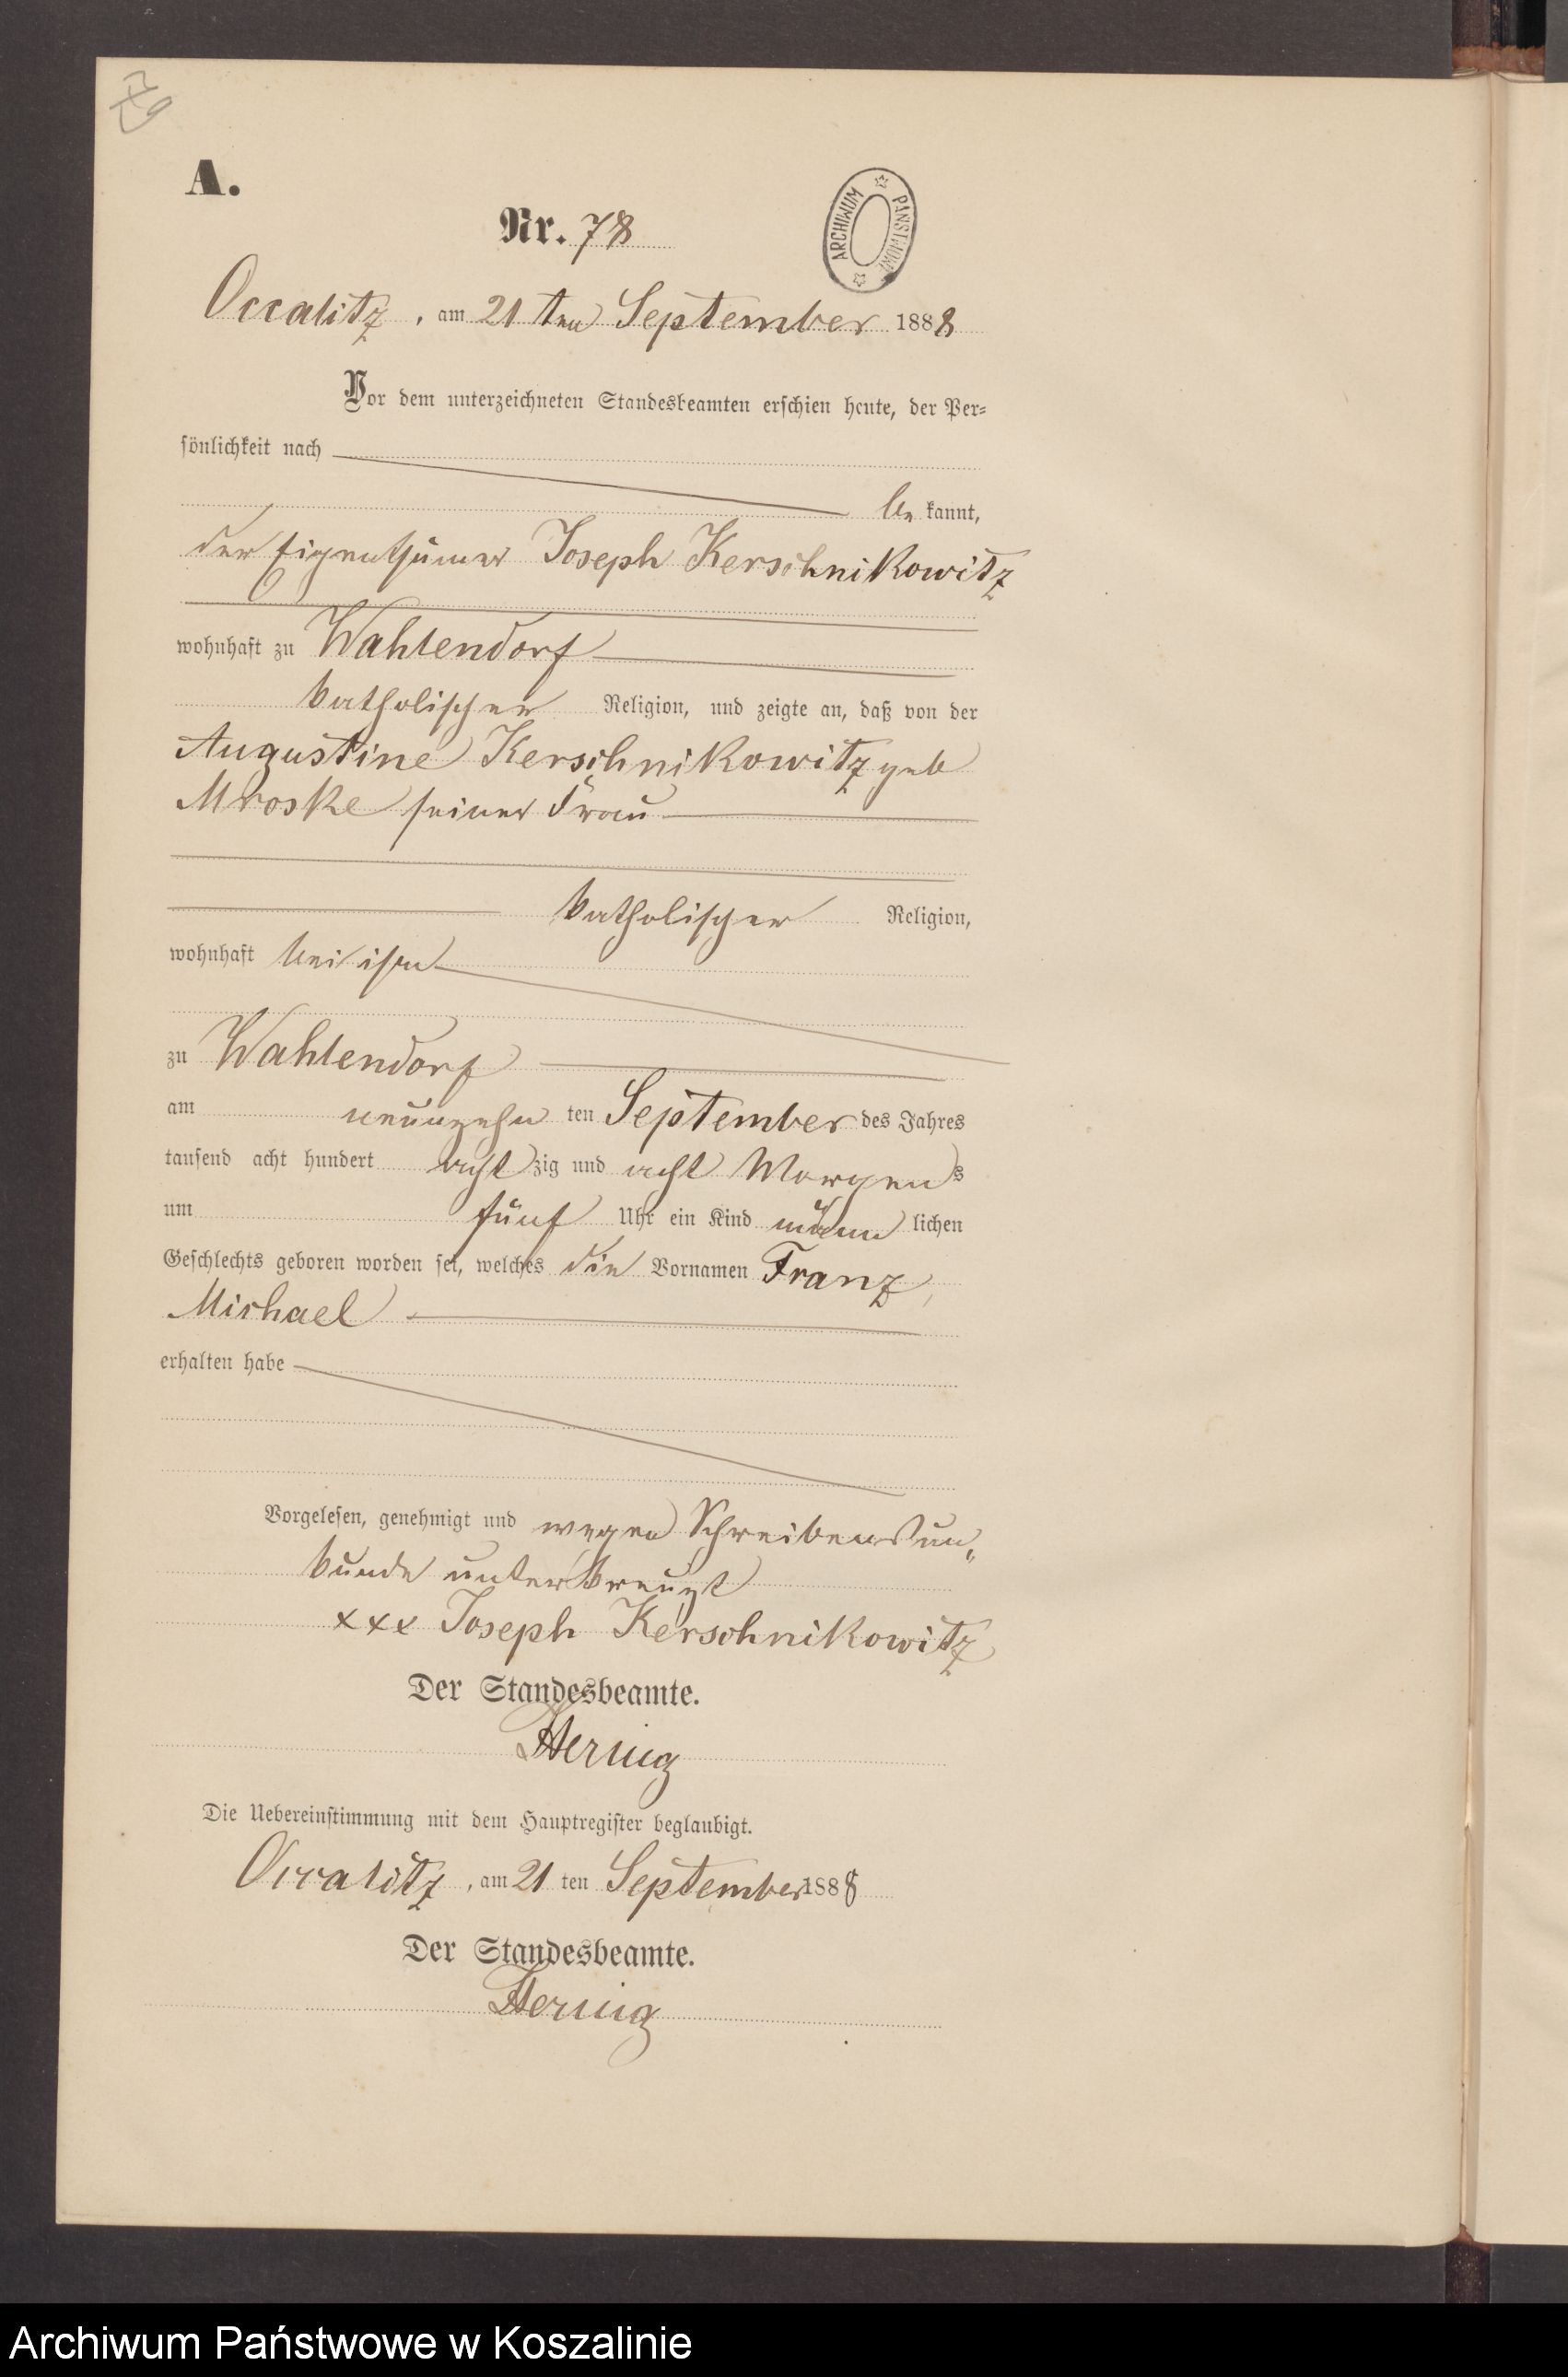 A.
Nr. 78
ARCHIWUM PAŃSTWOWE
Occalitz, am 21 ten September 1888
Vor dem unterzeichneten Standesbeamten erschien heute, der Per=
sönlichkeit nach
be kannt,
der Eigenthümer Joseph Kerschnikowitz
wohnhaft zu Wahlendorf
katholischer Religion, und zeigte an, daß von der
Augustine Kerschnikowitz geb
Mroske seiner Frau
katholischer Religion,
wohnhaft bei ihm
zu Wahlendorf
am neunzehn ten September des Jahres
tausend acht hundert acht zig und acht Morgens
um fünf Uhr ein Kind männ lichen
Geschlechts geboren worden sei, welches die Vornamen Franz,
Michael
erhalten habe
Vorgelesen, genehmigt und wegen Schreibensun„
kunde unterkreuzt
xxx Joseph Kerschnikowitz
Der Standesbeamte.
Hering
Die Uebereinstimmung mit dem Hauptregister beglaubigt.
Occalitz, am 21 ten September 1888
Der Standesbeamte.
Hering
Archiwum Państwowe w Koszalinie